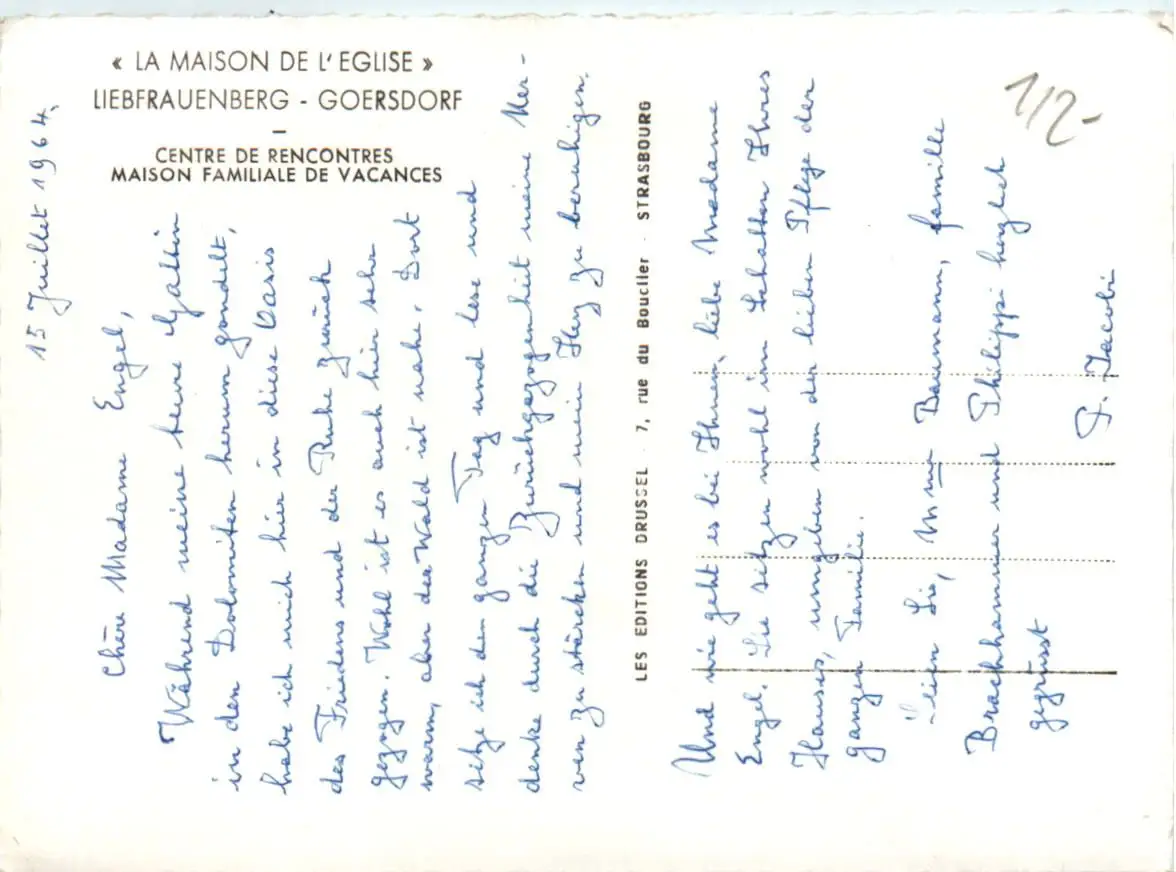 « LA MAISON DE L'EGLISE »
LIEBFRAUENBERG - GOERSDORF
CENTRE DE RENCONTRES
MAISON FAMILIALE DE VACANCES
15 Juillet 1964.
Chère Madame Engel,
Während meine teure Gattin
in den Dolomiten herum gondelt,
habe ich mich hier in diese Oasis
des Friedens und der Ruhe zurück
gezogen. Wohl ist es auch hier sehr
warm, aber der Wald ist nahe. Dort
sitze ich den ganzen Tag und lese und
denke durch die Zurückgezogenheit meine Ner-
ven zu stärken und mein Herz zu beruhigen.
LES EDITIONS DRUSSEL - 7, rue du Bouclier - STRASBOURG
Und wie geht es bei Ihnen, liebe Madame
Engel. Sie sitzen wohl im Schatten Ihres
Hauses, umgeben von der lieben Pflege der
ganzen Familie.
Seien Sie, Mme Baumann, famille
Brachhammer und Philippi herzlich
gegrüsst
P. Jacobi
1/2-